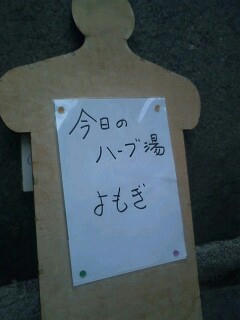 今日の
ハーブ湯
よもぎ